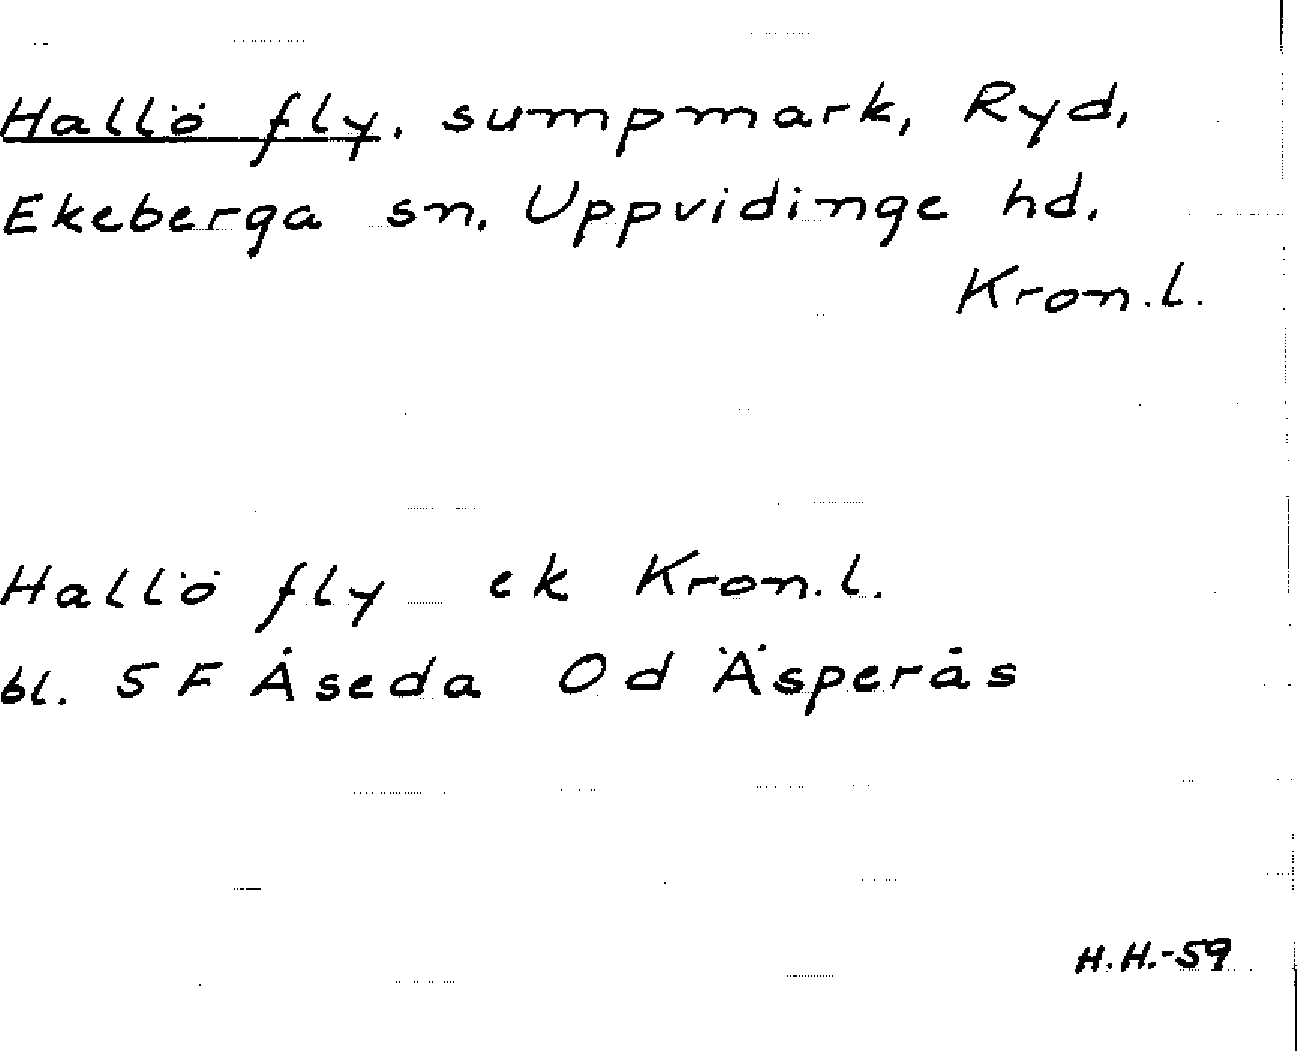 Hallö fly, sumpmark, Ryd,
Ekeberga sn. Uppvidinge hd.
Kron.l.
Hallö fly ek Kron.l.
bl. 5 F Åseda 0 d Äsperås
H.H.-59